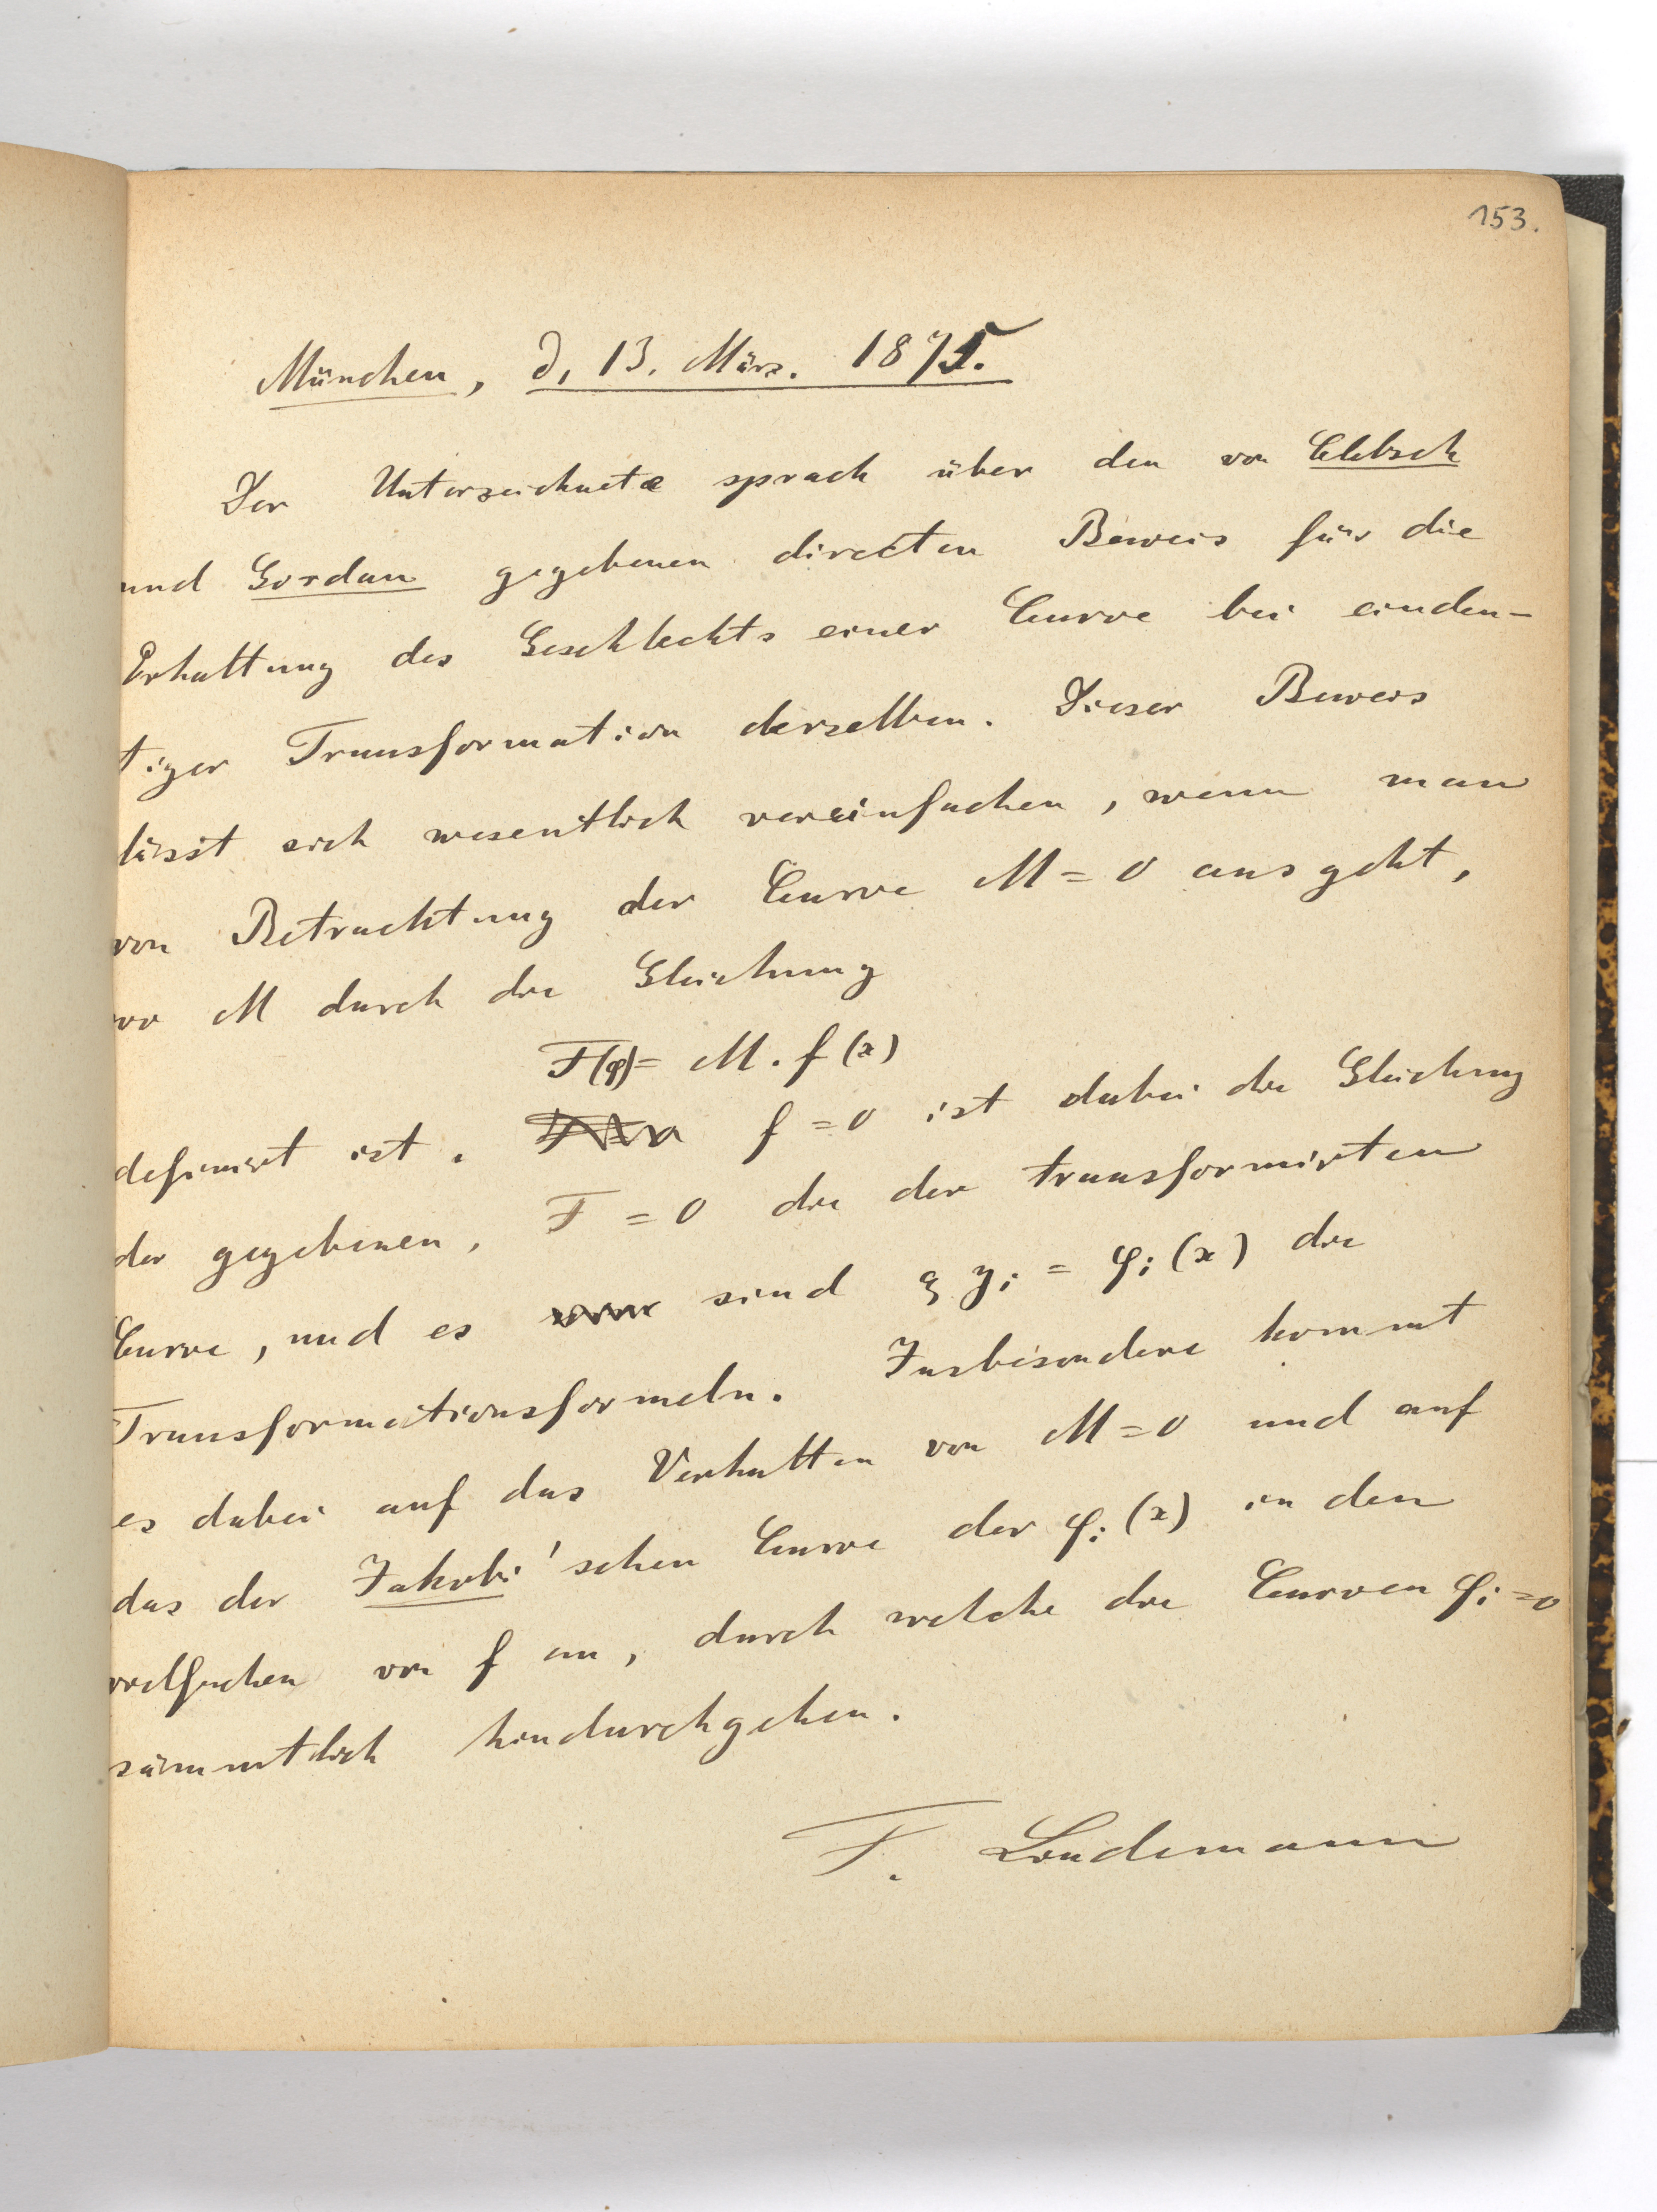 153.
München, d. 13. März. 1875.
Der Unterzeichnete sprach über den von Clebsch
und Gordan gegebenen directen Beweis für die
Erhaltung des Geschlechts einer Curve bei eindeu-
tiger Transformation derselben. Dieser Beweis
lässt sich wesentlich vereinfachen, wenn man
von Betrachtung der Curve M = 0 ausgeht,
wo M durch die Gleichung
F(φ) = M . f(x)
definirt ist. f = 0 ist dabei die Gleichung
der gegebenen, F = 0 die der transformirten
Curve, und es sind ϱ yi = φi (x) die
Transformationsformeln. Insbesondere kommt
es dabei auf das Verhalten von M = 0 und auf
das der Jakobi'schen Curve der φi (x) in den
vielfachen von f an, durch welche die Curven φi = 0
sämmtlich hindurchgehen.
F. Lindemann